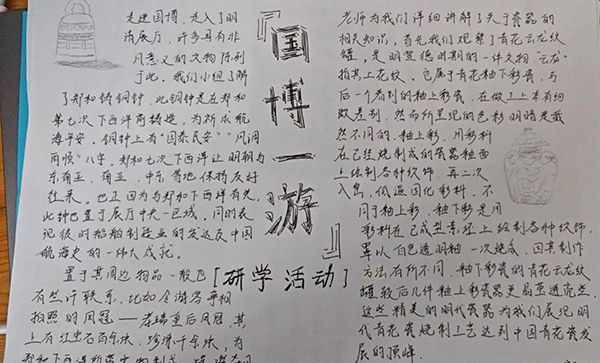 走进国博，走入了明
清展厅，许多具有非
凡意义的文物陈列
于此。我们小组了解
了郑和铸铜钟，此铜钟是在郑和
第七次下西洋前铸造，为祈求航
海平安。铜钟上有“国泰民安”“风调
雨顺”八字，郑和七次下西洋让明朝与
东南亚、南亚、中东等地保持友好
往来。也正因为与郑和下西洋有关，
此钟也置于展厅中央一区域，同时表
记彼时船舶制造业的发达及中国
航海史的一件大成就。
置于其周边物品一般也
有些许联系，比如令游客争相
拍照的凤冠——孝端皇后凤冠，其
上有红宝石百余块，珍珠千余块，为
『国博一游』
[研学活动]
老师为我们详细讲解了关于瓷器的
相关知识，首先我们观察了青花云龙纹
罐，是明宣德时期的一件文物，“云龙”
指其上花纹。它属于青花釉下彩瓷，与
后一个看到的釉上彩瓷，在做工上本有细
微差别，然而所呈现的色彩明暗是截
然不同的，釉上彩，用彩料
在已经烧制成的瓷器釉面
上绘制各种纹饰，再二次
入窑，低温固化彩料，不
同于釉上彩，釉下彩是用
彩料在已成型素坯上绘制各种纹饰，
罩以白色透明釉一次烧成，因其制作
方法有所不同，釉下彩瓷的青花云龙纹
罐较后几件釉上彩瓷器更晶莹透亮些，
这些精美的明代瓷器为我们展现明
代青花瓷烧制工艺达到中国青花瓷发
展的顶峰。